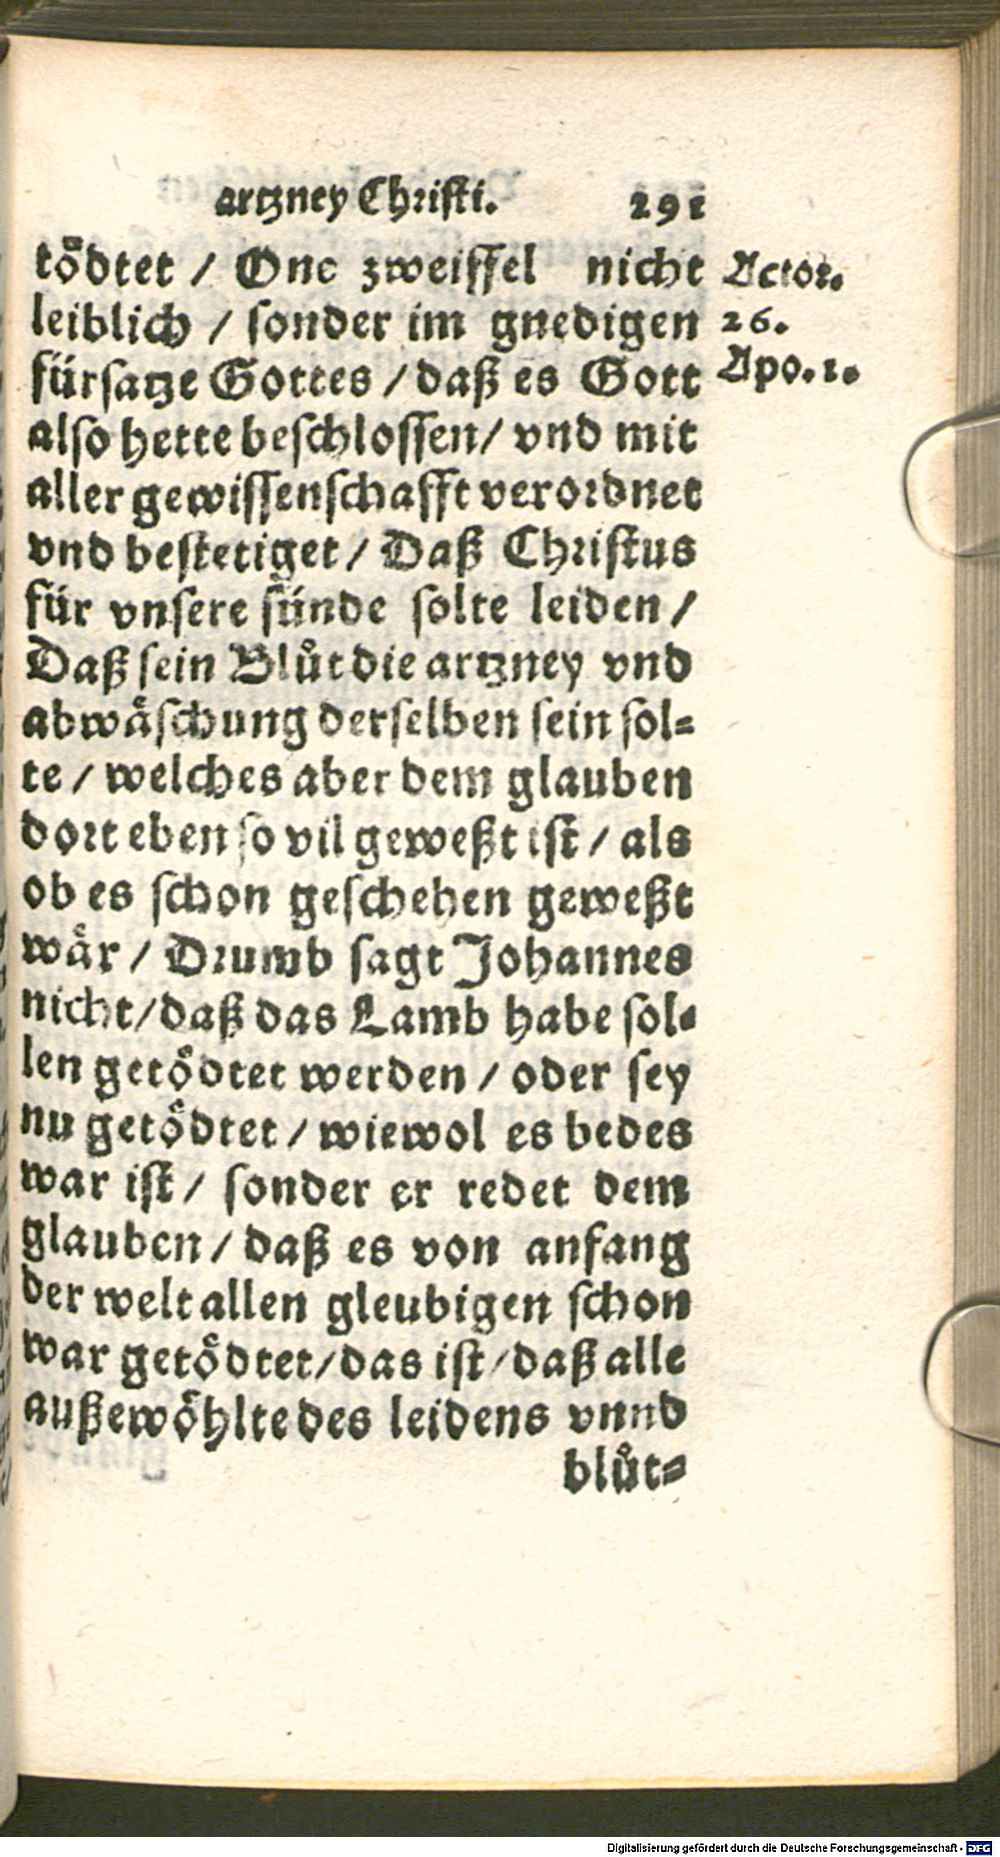 artzney Christi. 291
tödtet / One zweiffel nicht
leiblich / sonder im gnedigen
fürsatze Gottes / daß es Gott
also hette beschlossen / vnd mit
aller gewissenschafft verordnet
vnd bestetiget / Daß Christus
für vnsere sünde solte leiden /
Daß sein Blůt die artzney vnd
abwäschung derselben sein sol=
te / welches aber dem glauben
dort eben so vil geweßt ist / als
ob es schon geschehen geweßt
wär / Drumb sagt Johannes
nicht / daß das Lamb habe sol=
len getödtet werden / oder sey
nu getödtet / wiewol es bedes
war ist / sonder er redet dem
glauben / daß es von anfang
der welt allen gleubigen schon
war getödtet / das ist / daß alle
außewöhlte des leidens vnnd
blůt=
Actor.
26.
Apo. 1.
Digitalisierung gefördert durch die Deutsche Forschungsgemeinschaft - DFG